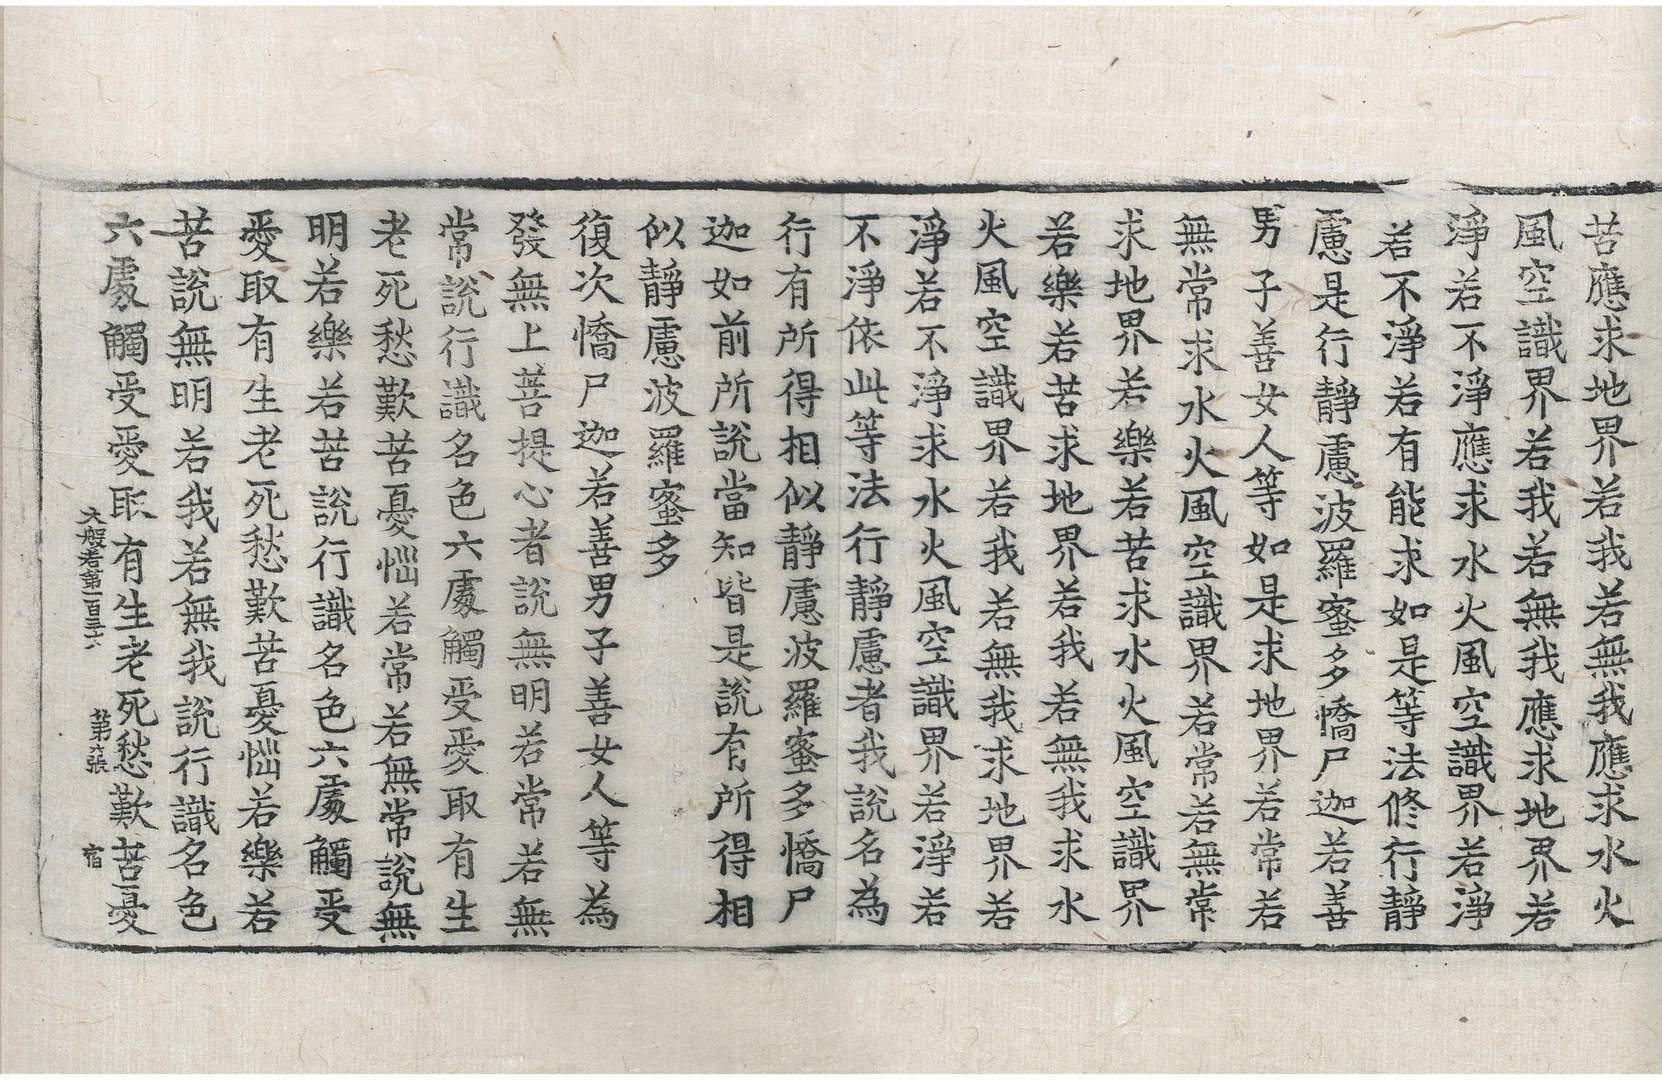 苦應求地界若我若無我應求水火
風空識界若我若無我應求地界若
淨若不淨應求水火風空識界若淨
若不淨若有能求如是等法修行靜
慮是行靜慮波羅蜜多憍尸迦若善
男子善女人等如是求地界若常若
無常求水火風空識界若常若無常
求地界若樂若苦求水火風空識界
若樂若苦求地界若我若無我求水
火風空識界若我若無我求地界若
淨若不淨求水火風空識界若淨若
不淨依此等法行靜慮者我說名為
行有所得相似靜慮波羅蜜多憍尸
迦如前所說當知皆是說有所得相
似靜慮波羅蜜多
復次憍尸迦若善男子善女人等為
發無上菩提心者說無明若常若無
常說行識名色六處觸受愛取有生
老死愁歎苦憂惱若常若無常說無
明若樂若苦說行識名色六處觸受
愛取有生老死愁歎苦憂惱若樂若
苦說無明若我若無我說行識名色
六處觸受愛取有生老死愁歎苦憂
大般若第一百三十六 第六張 宿